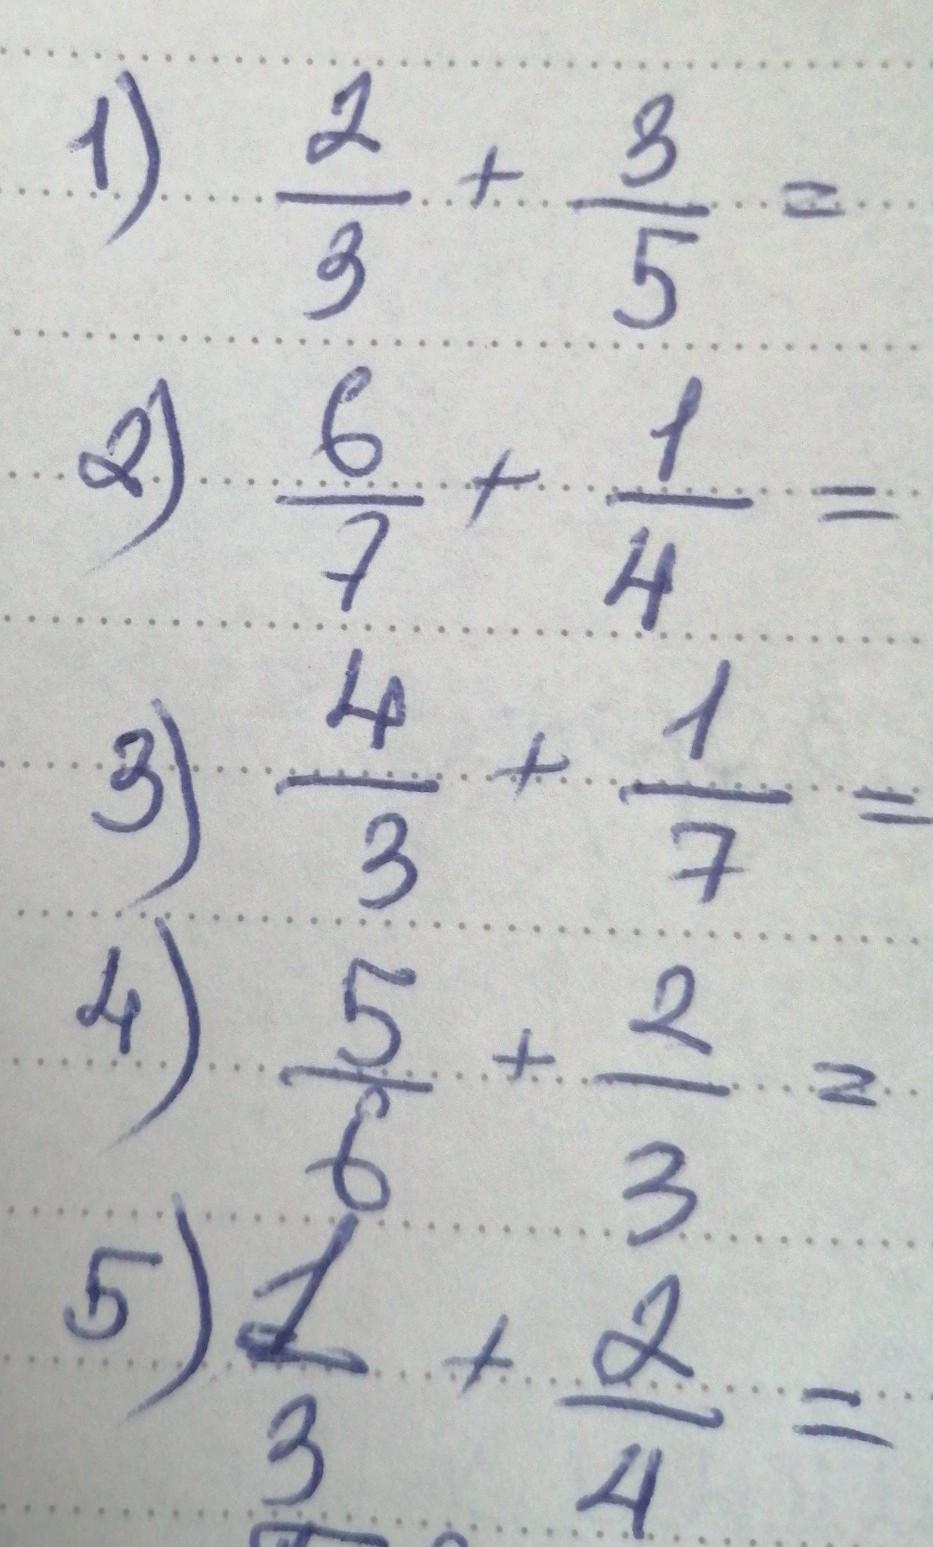 1) 2/3 + 3/5 =
2) 6/7 + 1/4 =
3) 4/3 + 1/7 =
4) 5/6 + 2/3 =
5) 1/3 + 2/4 =